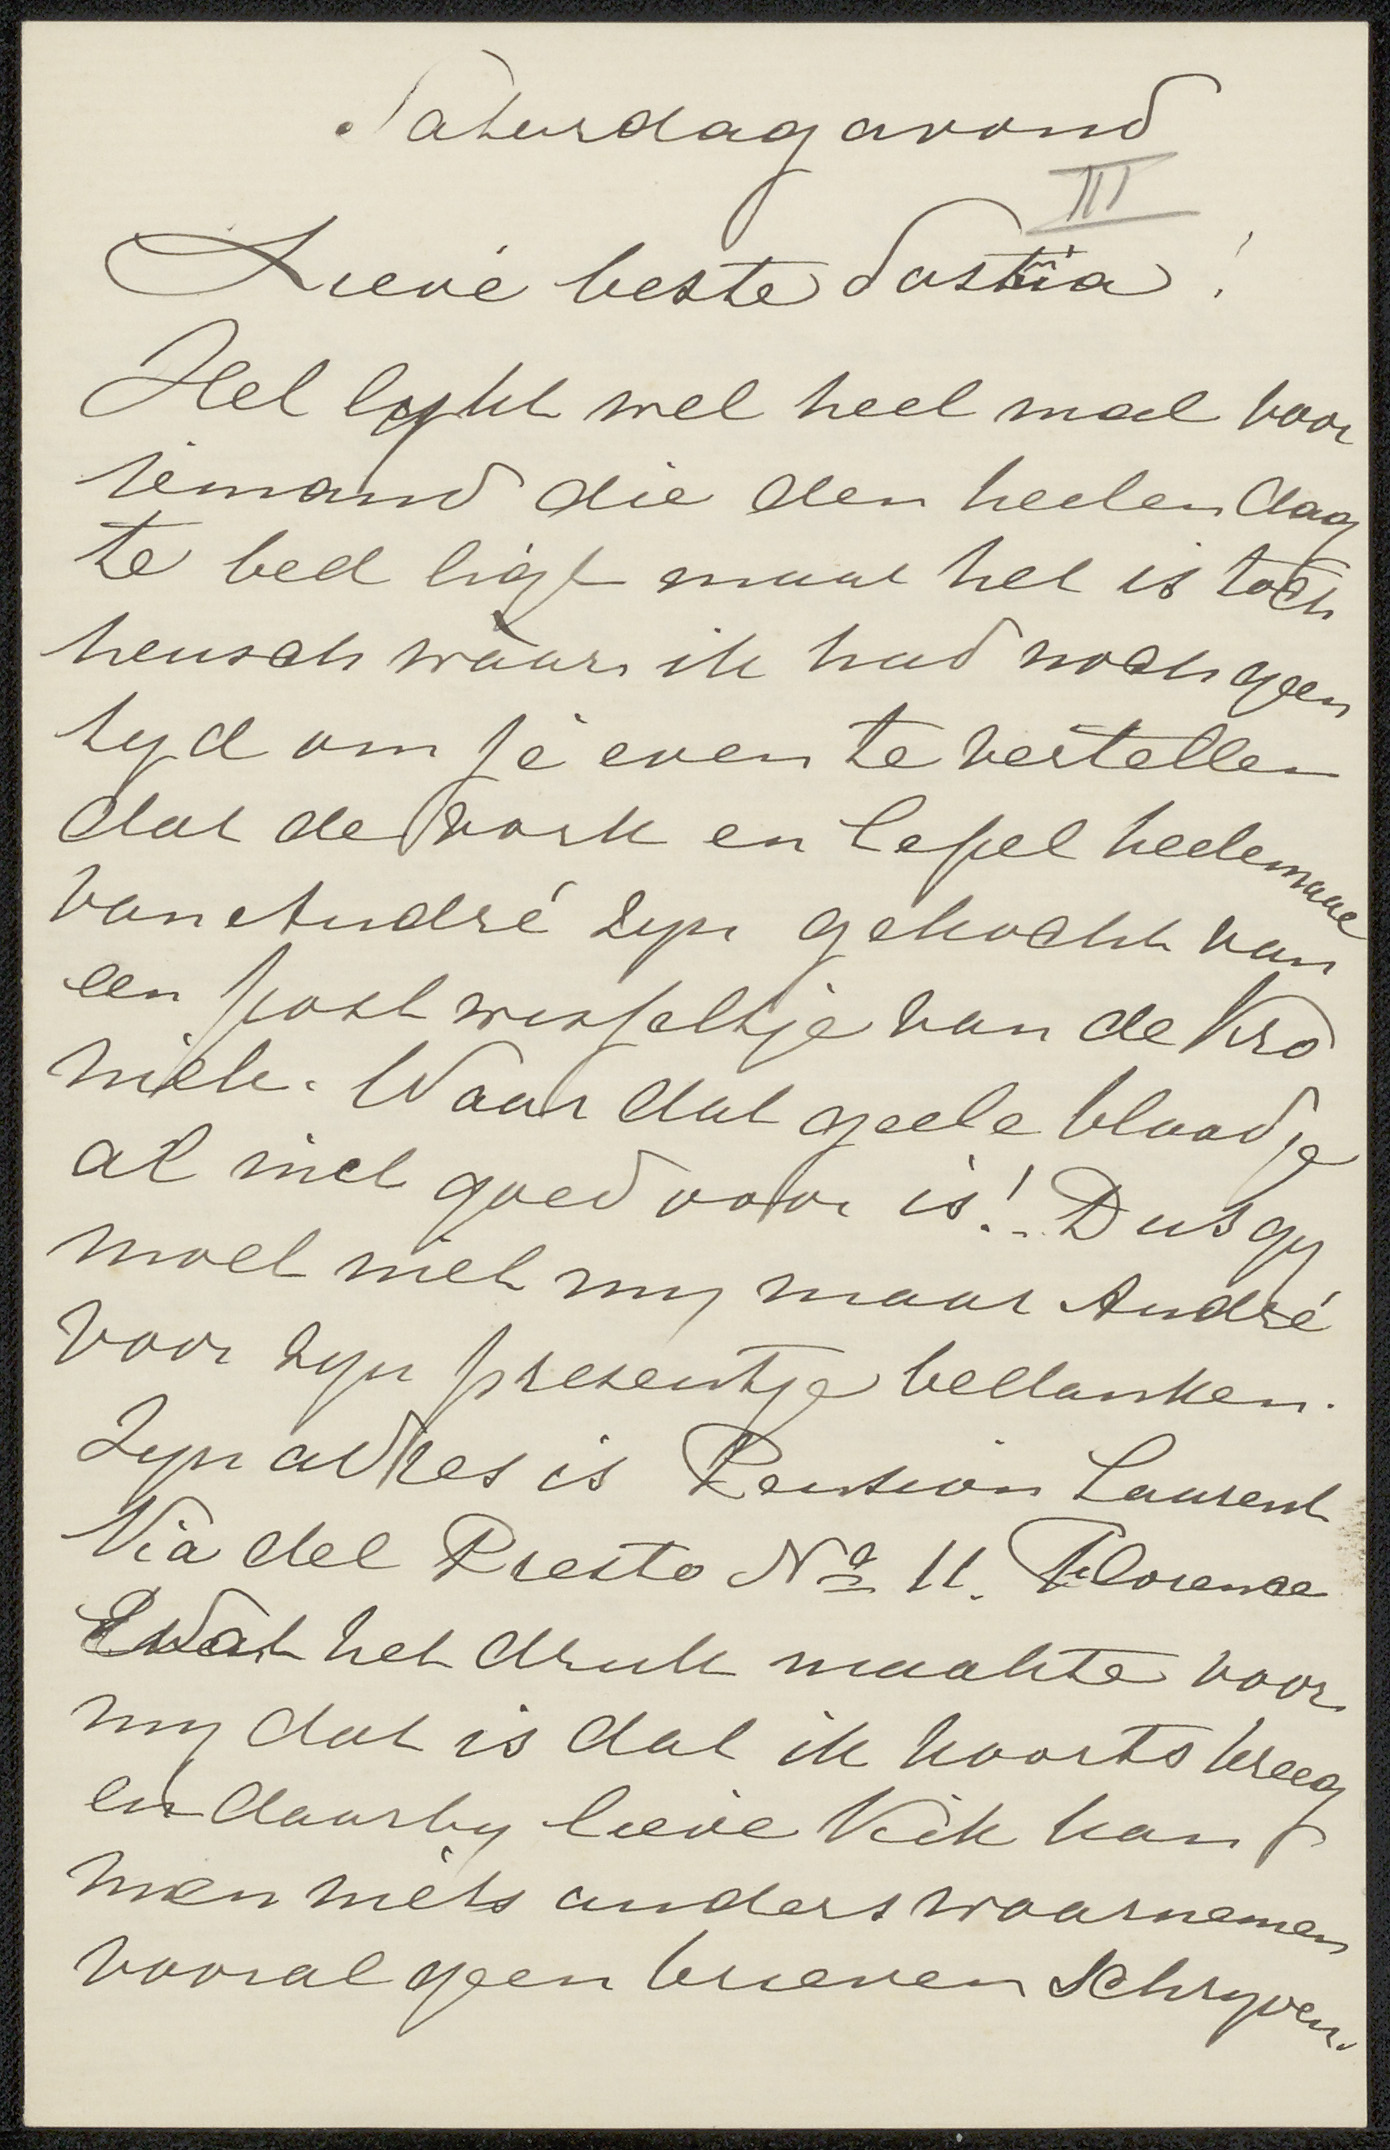 Saturdag avond
III
Lieve beste Sastïa!
Het lykt wel heel mal voor
iemand die den heelen dag
te bed ligt maar het is toch
heusch waar, ik had noch geen
tyd om je even te vertellen
dat de vork en lepel heelemaal
van André zyn gekocht van
een postwisseltje van de Kro
niek. Waar dat geele blaadje
al niet goed voor is! Dus gy
moet niet my maar André
voor zyn presentje bedanken.
Zyn adres is Pension Laurent
Via del Presto No 11. Florence
Wat het druk maakte voor
my dat is dat ik koorts kreeg
en daarby lieve Kik kan
men niets anders waarnemen
vooral geen brieven schryven.